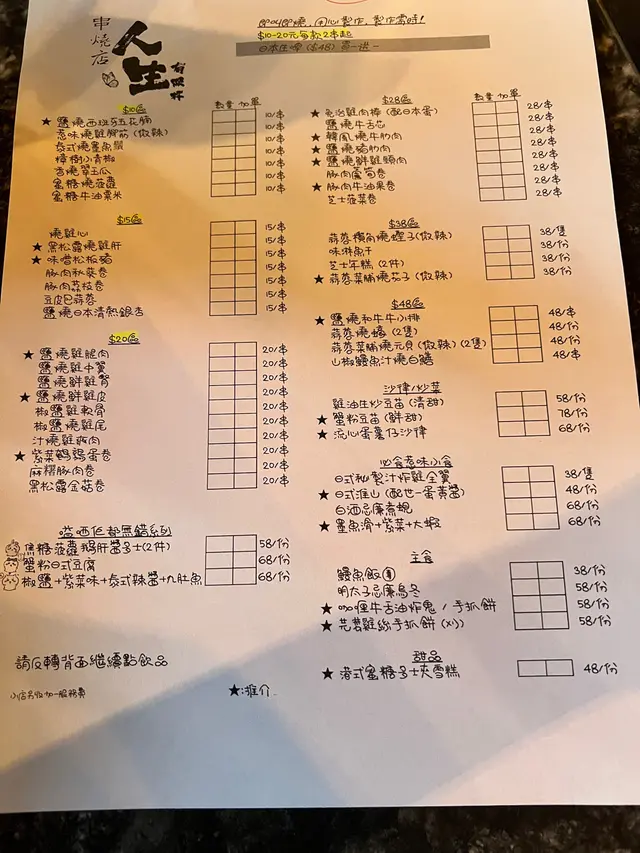 串燒店
人生
即叫即燒，用心製作，製作需時！
$10-20元每款2串起
日本生啤 ($48) 買一送一
$10區
數量 加單
★ 鹽燒西班牙五花腩 10/串
惹味燒雞腳筋 (微辣) 10/串
泰式燒墨魚鬚 10/串
樟樹小青椒 10/串
鹽燒翠玉瓜 10/串
蜜糖燒菠蘿 10/串
蜜糖牛油粟米 10/串
$15區
燒雞心 15/串
★ 黑松露燒雞肝 15/串
★ 味噌松板豬 15/串
豚肉秋葵卷 15/串
豚肉荔枝卷 15/串
豆皮巴蒜蓉 15/串
鹽燒日本清熱銀杏 15/串
$20區
★ 鹽燒雞腿肉 20/串
鹽燒雞中翼 20/串
鹽燒鮮雞腎 20/串
★ 鹽燒鮮雞皮 20/串
椒鹽雞軟骨 20/串
椒鹽燒雞尾 20/串
汁燒雞 20/串
★ 紫菜鵪鶉蛋卷 20/串
麻糬豚肉卷 20/串
黑松露金菇卷 20/串
嗒晒佢都無錯系列
焦糖菠蘿鵝肝醬多士(2件) 58/份
蟹粉日式豆腐 68/份
椒鹽+紫菜味+泰式辣醬+九肚魚 68/份
請反轉背面繼續點飲品
小店另收加一服務費
★:推介
$28區
數量 加單
★ 免治雞肉棒 (配日本蛋) 28/串
鹽燒牛舌芯 28/串
★ 韓風燒牛肋肉 28/串
★ 鹽燒豬肋肉 28/串
★ 鹽燒鮮雞頸肉 28/串
豚肉蘆筍卷 28/串
★ 豚肉牛油果卷 28/串
芝士菠菜卷 28/串
$38區
蒜蓉橫角燒蟶子(微辣) 38/隻
味淋魚干 38/份
芝士年糕 (2件) 38/份
★ 蒜蓉菜脯燒茄子 (微辣) 38/份
$48區
★ 鹽燒和牛牛小排 48/串
蒜蓉燒蠔 (2隻) 48/份
蒜蓉菜脯燒元貝 (微辣) (2隻) 48/份
山椒鰻魚汁燒白鱔 48/串
沙律/炒菜
雞油生炒豆苗 (清甜) 58/份
★ 蟹粉豆苗 (鮮甜) 78/份
★ 流心蛋薯仔沙律 68/份
必食惹味小食
日式秘製汁炸雞全翼 38/隻
★ 日式淮山 (配世一蛋黃醬) 48/份
白酒忌廉煮蜆 68/份
★ 墨魚滑+紫菜+大蝦 68/份
主食
鰻魚飯 38/份
明太子忌廉烏冬 58/份
★ 咖喱牛舌油炸鬼 / 手抓餅 58/份
★ 芫荽雞絲手抓餅 (凍) 58/份
甜品
★ 港式蜜糖多士夾雪糕 48/份